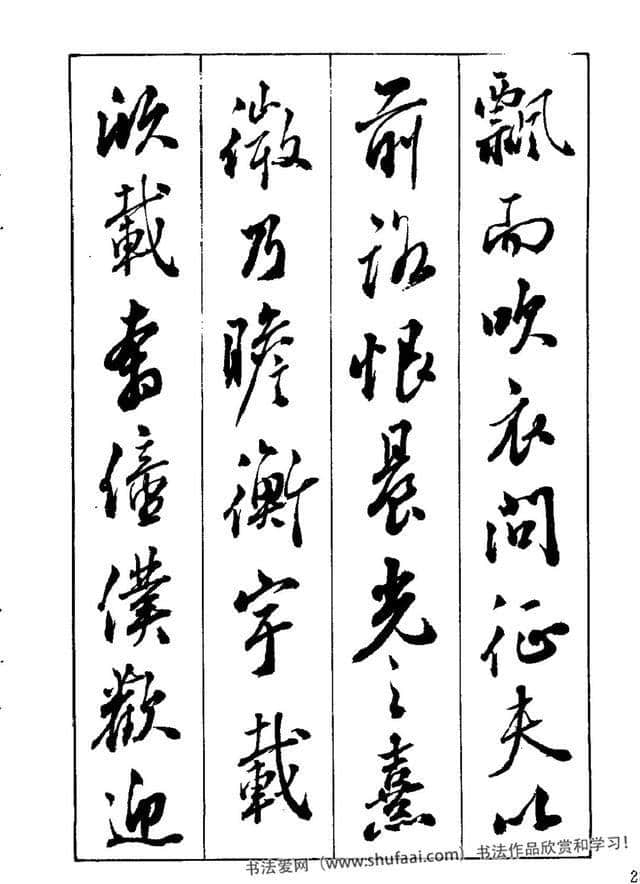 飄而吹衣問征夫以
前路恨晨光之熹
微乃瞻衡宇載
欣載奔僮僕歡迎
书法爱网（www.shufaai.com）书法作品欣赏和学习！
2